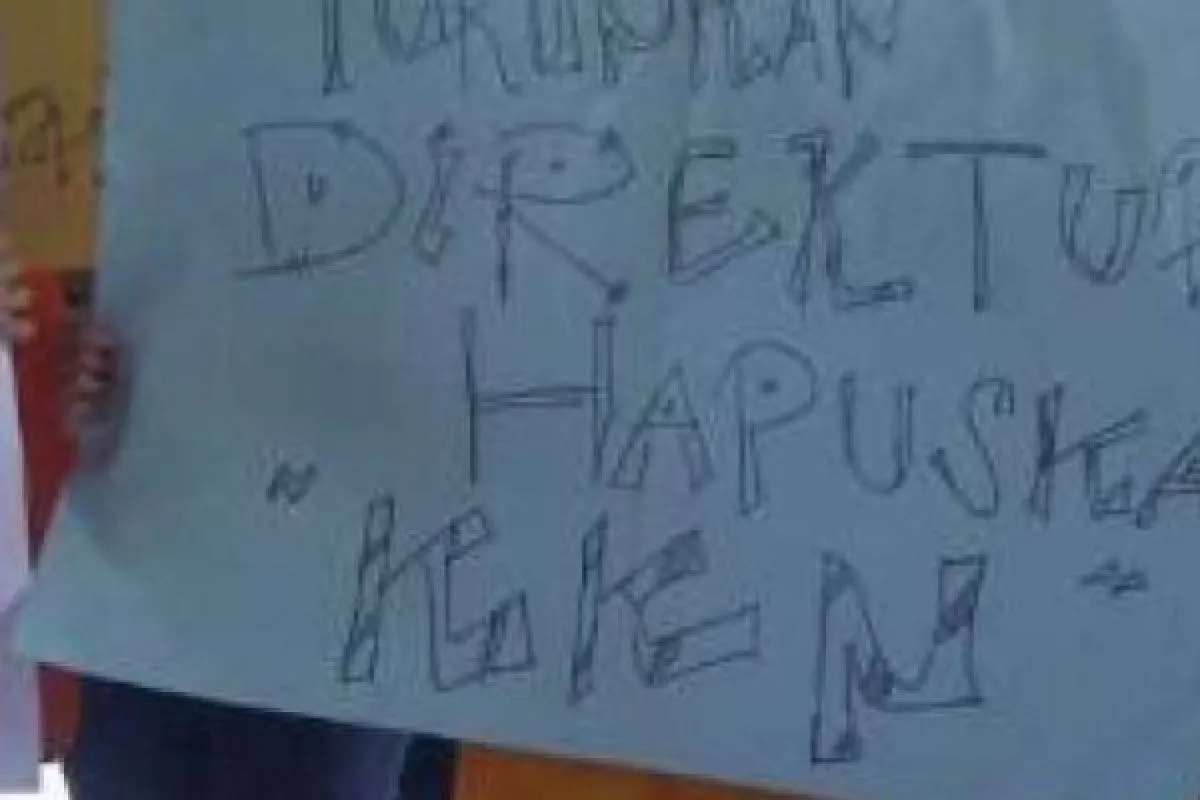 TURUNKAN
DIREKTUR
HAPUSKA
"KKN"